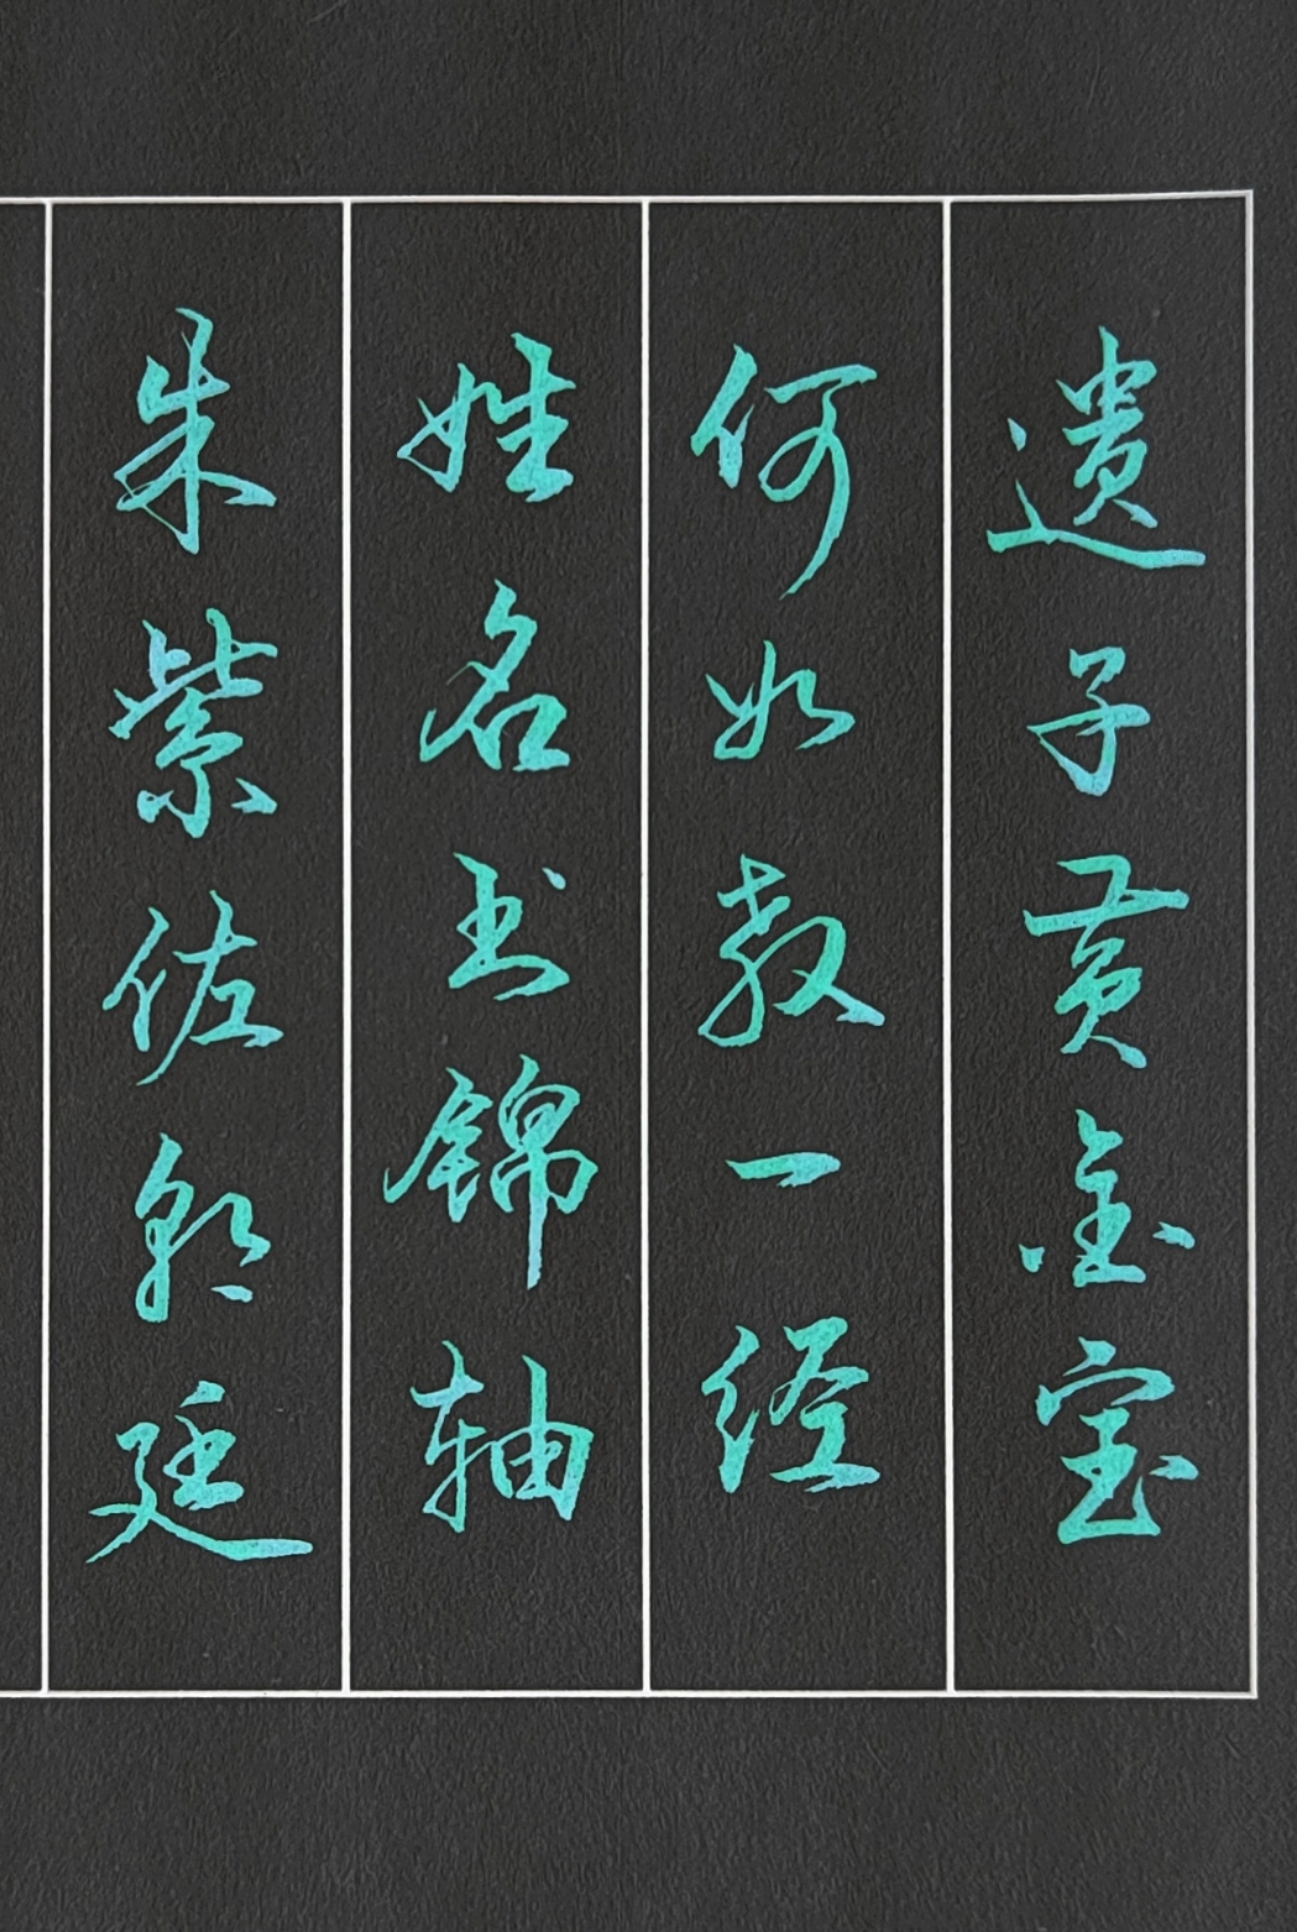 遗子黄金宝
何如教一经
姓名书锦轴
朱紫佐朝廷